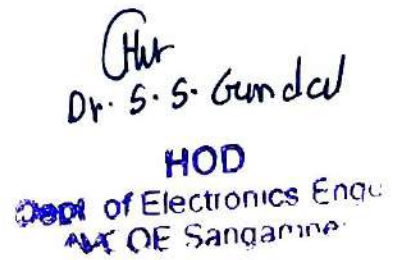 Dr. S. S. Gundal
HOD
Dept of Electronics Engg
OE Sangamner